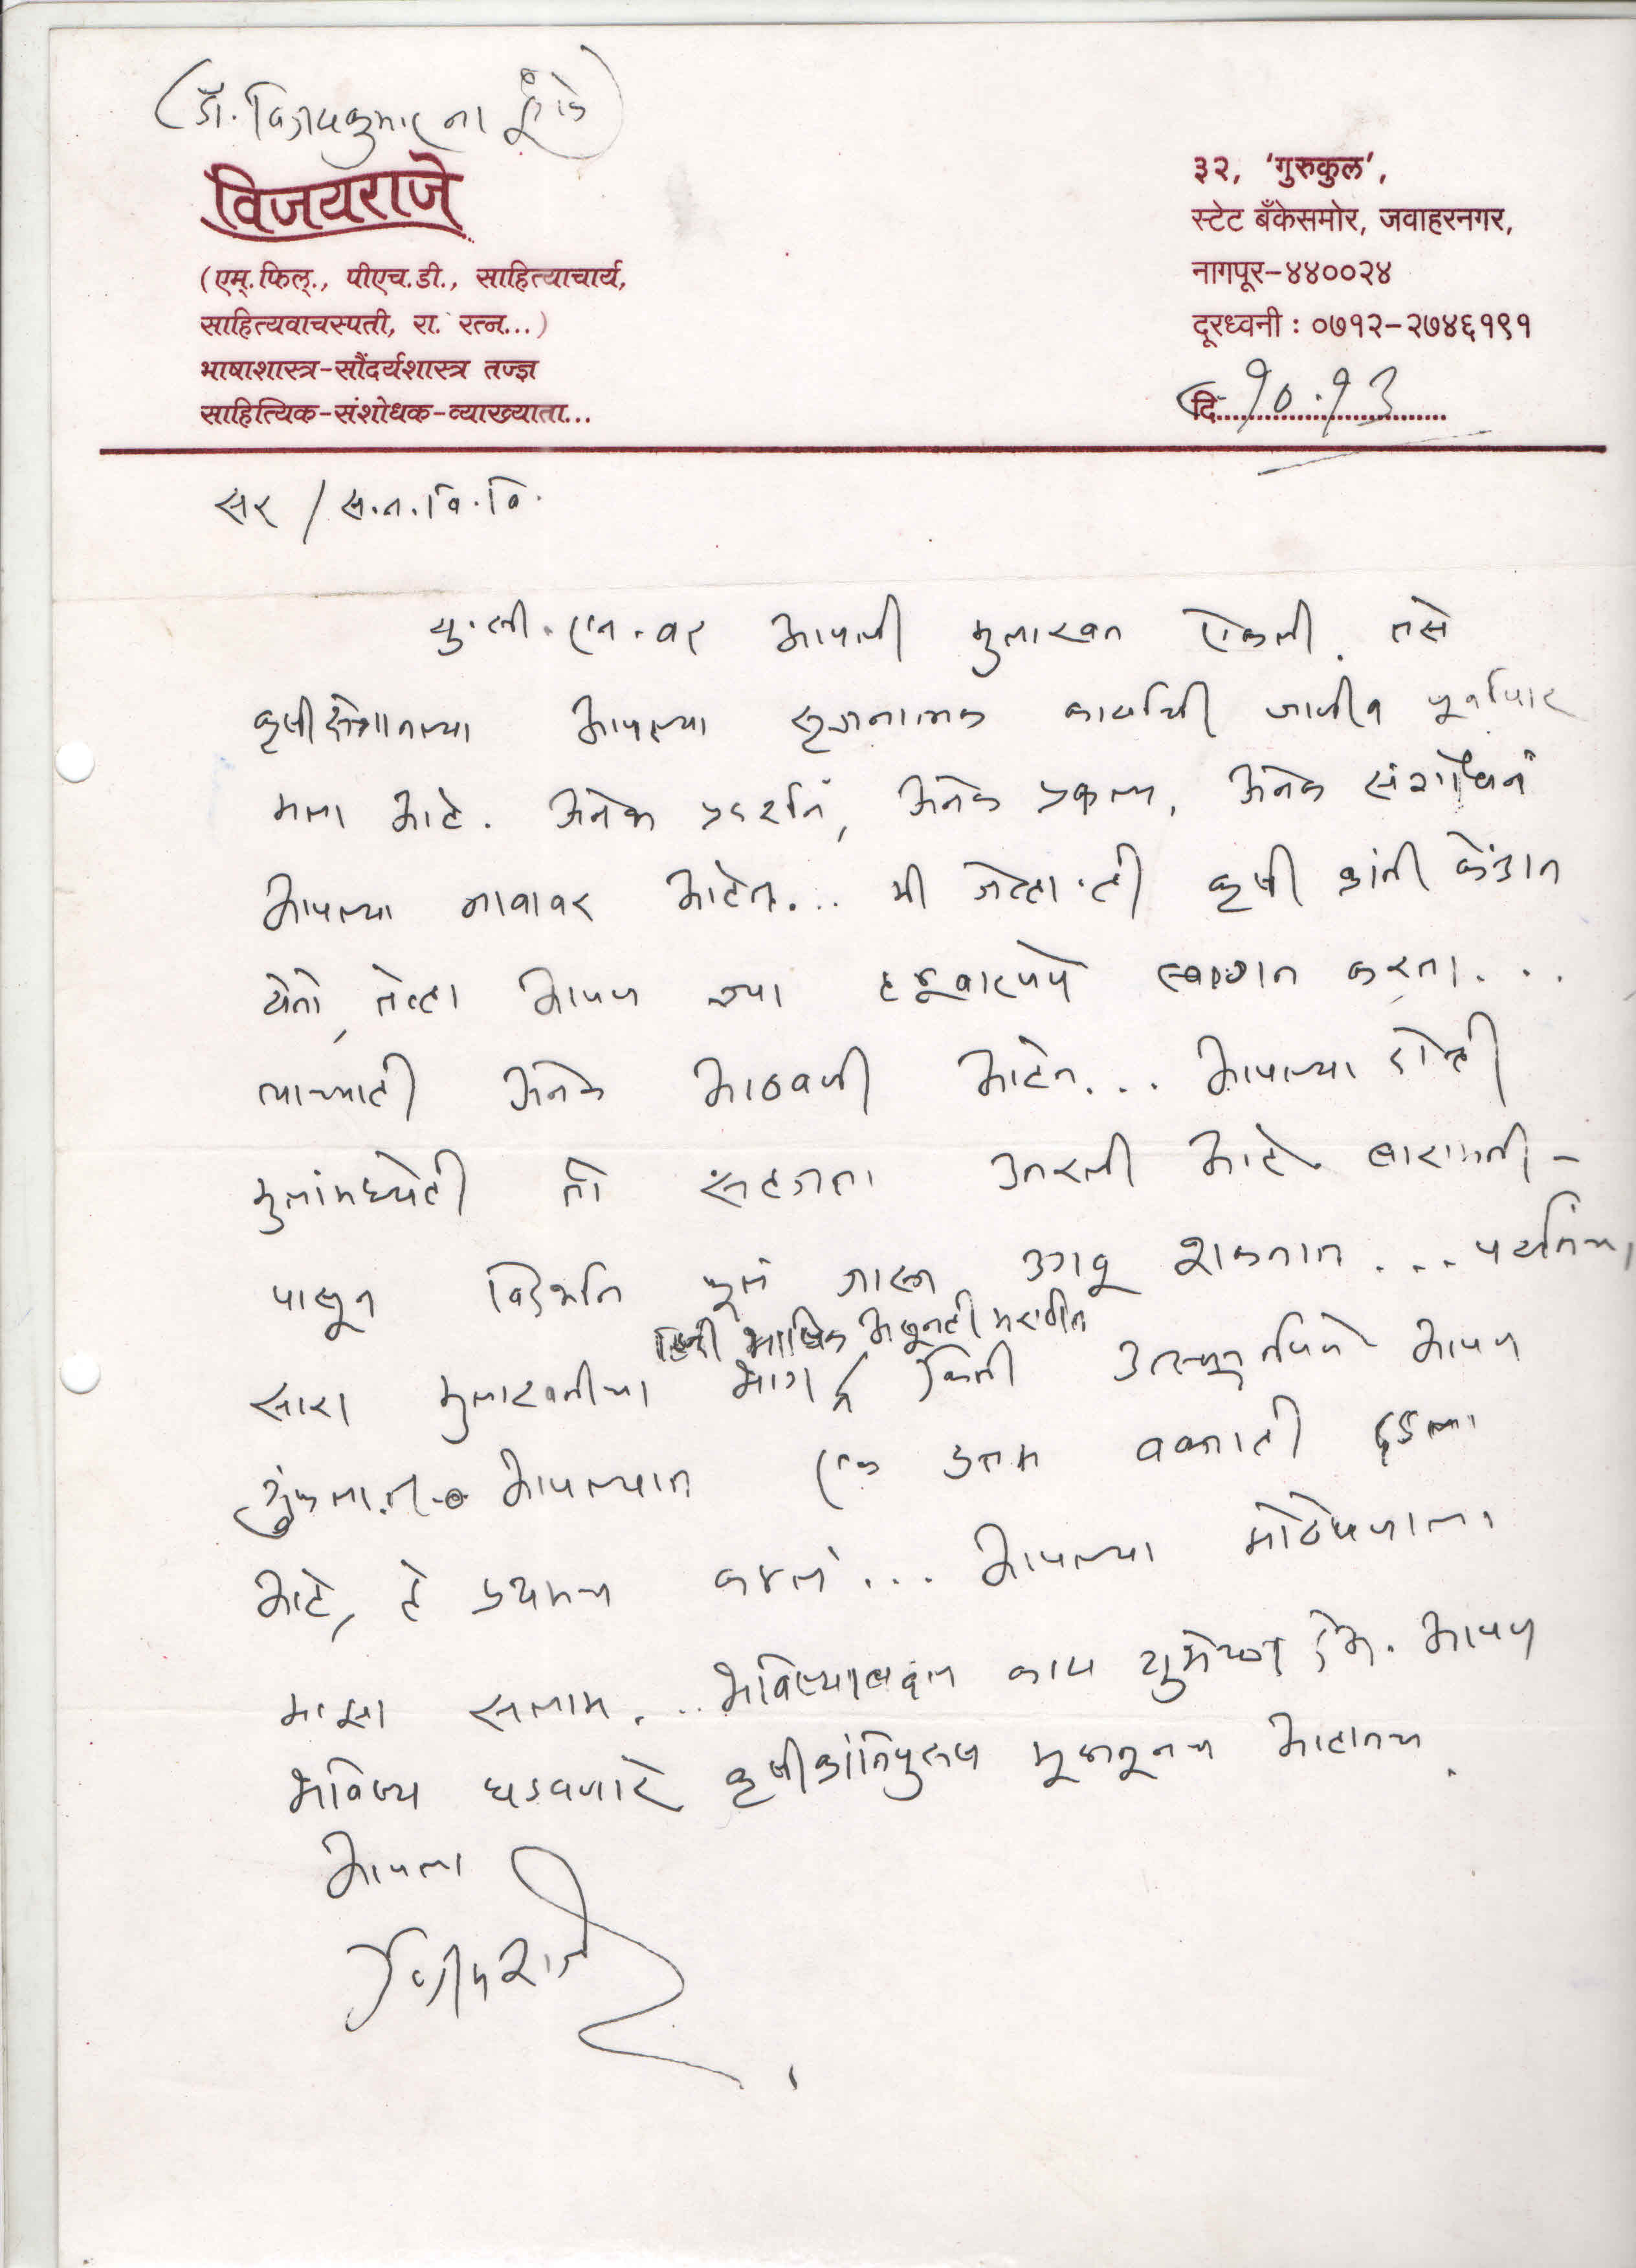 (डॉ. विजयकुमार ना
विजयराजे
(एम्.फिल्., पीएच.डी., साहित्याचार्य,
साहित्यवाचस्पती, रा. रत्न...)
भाषाशास्त्र-सौंदर्यशास्त्र तज्ज्ञ
साहित्यिक-संशोधक-व्याख्याता...
३२, ‘गुरुकुल’,
स्टेट बँकेसमोर, जवाहरनगर,
नागपूर-४४००२४
दूरध्वनी : ०७१२-२७४६१९१
दि. १०.१३
सर / स.न.वि.वि.
यु.सी.एन.वर आपली मुलाखत ऐकली. तसे
कृषीक्षेत्रातल्या आपल्या सृजनात्मक कार्याची जाणीव पूर्वापार
मला आहे. अनेक प्रदर्शनं, अनेक प्रकल्प, अनेक संशोधनं
आपल्या नावावर आहेत... मी जेव्हा ही कृषी क्रांती केंद्रात
येतो, तेव्हा आपण ज्या हळूवारपणे स्वागत करता...
त्याच्याही अनेक आठवणी आहेत... आपल्या दोन्ही
मुलांमध्येही ती सहजता उतरली आहे. बारामती-
पासून विदर्भात फुलं जास्त उगवू शकतात... पर्यंतचा
हिन्दी भाषिक असूनही मराठीत
सारा मुलाखतीचा भाग किती उत्स्फूर्तपणे आपण
आपल्यात एक उत्तम वक्ताही दडला
आहे, हे प्रथमच कळलं... आपल्या मोठेपणाला
माझा सलाम... भविष्याबद्दल काय शुभेच्छा देऊ. आपण
भविष्य घडवणारे कृषीक्रांतिपुरुष म्हणूनच आहातच.
आपला
विजयराजे